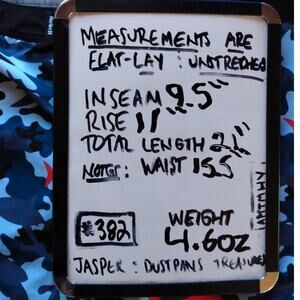 MEASUREMENTS ARE
FLAT-LAY : UNSTRETCHED
INSEAM 9.5"
RISE 11"
TOTAL LENGTH 21"
NOTES: WAIST 15.5
#382
WEIGHT
4.6OZ
JASPER : DUSTPANS TREASURES